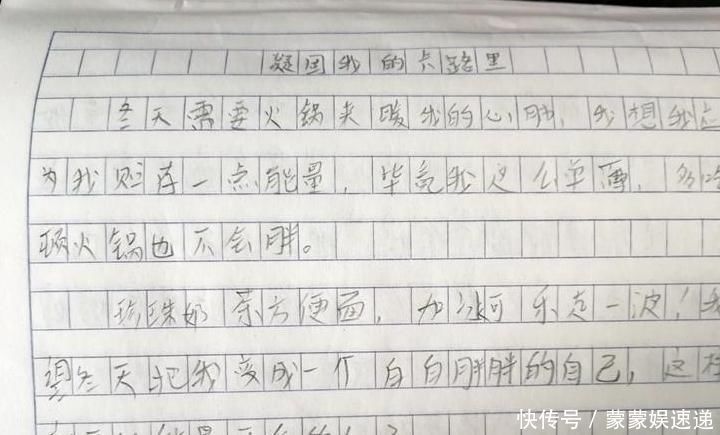 凝固我的卡路里
冬天需要火锅来暖我的心肺，我想我应
为我贮存一点能量，毕竟我这么单薄，多吃
顿火锅也不会胖。
珍珠奶茶方便面，加冰可乐走一波！我
望冬天把我变成一个白白胖胖的自己，这样
快传号 / 蒙蒙娱速递